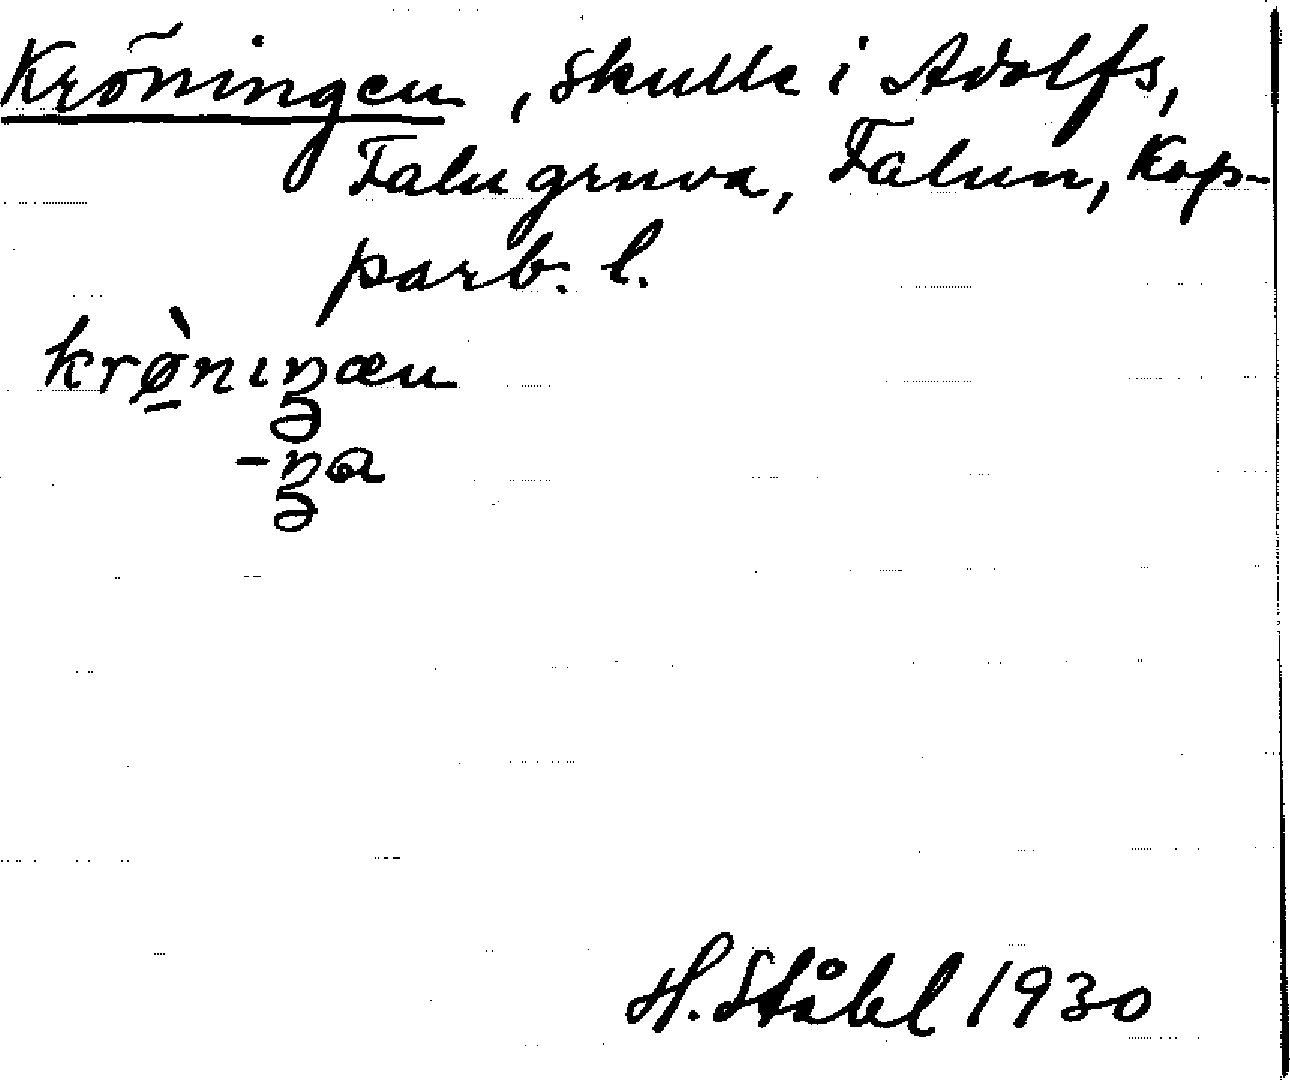 Kröningen, skulle i Adolfs,
Falu gruva, Falun, Kop-
parb. l.
krø̠̀nıŋæn
-ŋa
H. Ståhl 1930